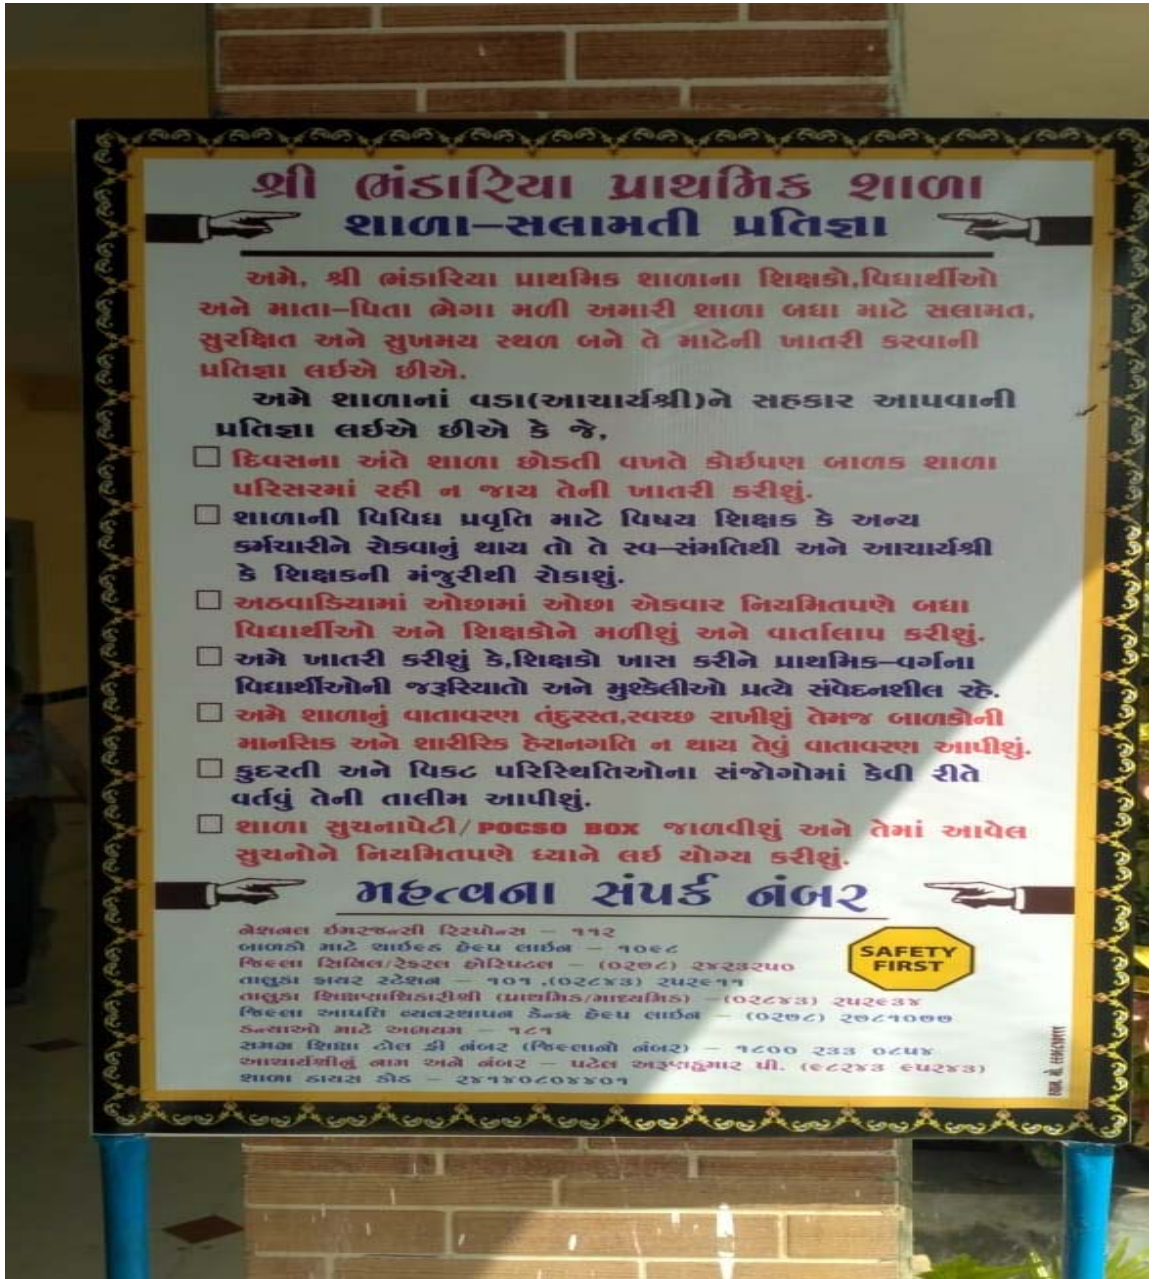 શ્રી ભંડારિયા પ્રાથમિક શાળા
શાળા–સલામતી પ્રતિજ્ઞા
અમે, શ્રી ભંડારિયા પ્રાથમિક શાળાના શિક્ષકો,વિદ્યાર્થીઓ
અને માતા–પિતા ભેગા મળી અમારી શાળા બધા માટે સલામત,
સુરક્ષિત અને સુખમય સ્થળ બને તે માટેની ખાતરી કરવાની
પ્રતિજ્ઞા લઈએ છીએ.
અમે શાળાનાં વડા(આચાર્યશ્રી)ને સહકાર આપવાની
પ્રતિજ્ઞા લઈએ છીએ કે જે,
□ દિવસના અંતે શાળા છોડતી વખતે કોઈપણ બાળક શાળા
પરિસરમાં રહી ન જાય તેની ખાતરી કરીશું.
□ શાળાની વિવિધ પ્રવૃતિ માટે વિષય શિક્ષક કે અન્ય
કર્મચારીને રોકવાનું થાય તો તે સ્વ–સંમતિથી અને આચાર્યશ્રી
કે શિક્ષકની મંજુરીથી રોકાશું.
□ અઠવાડિયામાં ઓછામાં ઓછા એકવાર નિયમિતપણે બધા
વિદ્યાર્થીઓ અને શિક્ષકોને મળીશું અને વાર્તાલાપ કરીશું.
□ અમે ખાતરી કરીશું કે,શિક્ષકો ખાસ કરીને પ્રાથમિક–વર્ગના
વિદ્યાર્થીઓની જરૂરિયાતો અને મુશ્કેલીઓ પ્રત્યે સંવેદનશીલ રહે.
□ અમે શાળાનું વાતાવરણ તંદુરસ્ત,સ્વચ્છ રાખીશું તેમજ બાળકોની
માનસિક અને શારીરિક હેરાનગતિ ન થાય તેવું વાતાવરણ આપીશું.
□ કુદરતી અને વિકટ પરિસ્થિતિઓના સંજોગોમાં કેવી રીતે
વર્તવું તેની તાલીમ આપીશું.
□ શાળા સુચનાપેટી/POCSO BOX જાળવીશું અને તેમાં આવેલ
સુચનોને નિયમિતપણે ધ્યાને લઈ યોગ્ય કરીશું.
મહત્વના સંપર્ક નંબર
નેશનલ ઈમરજન્સી રિસ્પોન્સ – ૧૧૨
બાળકો માટે ચાઈલ્ડ હેલ્પ લાઈન – ૧૦૯૮
જિલ્લા સિવિલ/રેફરલ હોસ્પિટલ – (૦૨૭૮) ૨૪૨૩૨૫૦
તાલુકા ફાયર સ્ટેશન – ૧૦૧ ,(૦૨૮૪૩) ૨૫૨૯૧૧
તાલુકા શિક્ષણાધિકારીશ્રી (પ્રાથમિક/માધ્યમિક) – (૦૨૮૪૩) ૨૫૨૯૩૪
જિલ્લા આપતિ વ્યવસ્થાપન કેન્દ્ર હેલ્પ લાઈન – (૦૨૭૮) ૨૭૮૧૦૭૭
કન્યાઓ માટે અભયમ – ૧૮૧
સમગ્ર શિક્ષા ટોલ ફ્રી નંબર (જિલ્લાનો નંબર) – ૧૮૦૦ ૨૩૩ ૦૮૫૪
આચાર્યશ્રીનું નામ અને નંબર – પટેલ અરૂણકુમાર પી. (૯૮૨૪૩ ૯૫૨૪૩)
શાળા ડાયસ કોડ – ૨૪૧૪૦૮૦૪૪૦૧
SAFETY
FIRST